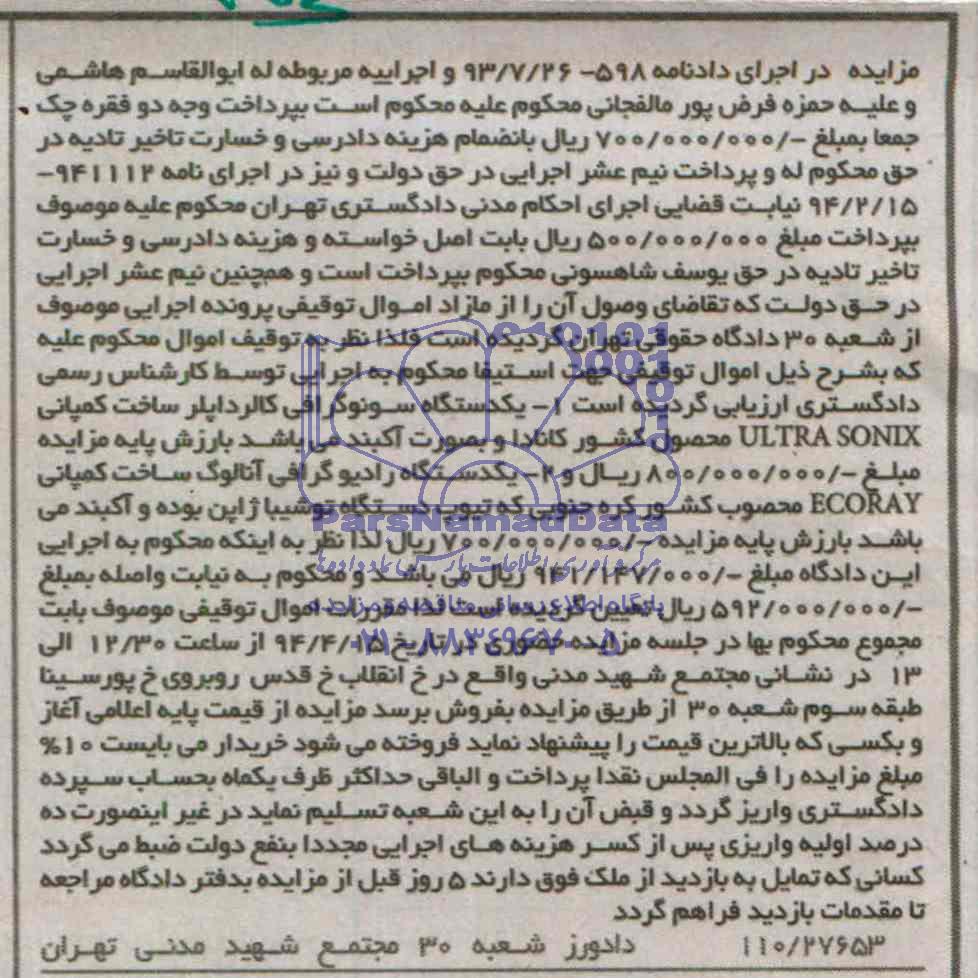 مزایده در اجرای دادنامه ۵۹۸- ۹۳/۷/۲۶ و اجراییه مربوطه له ابوالقاسم هاشمی
و علیه حمزه فرض پور مالفجانی محکوم علیه محکوم است بپرداخت وجه دو فقره چک
جمعا بمبلغ -/۷۰۰/۰۰۰/۰۰۰ ریال بانضمام هزینه دادرسی و خسارت تاخیر تادیه در
حق محکوم له و پرداخت نیم عشر اجرایی در حق دولت و نیز در اجرای نامه ۹۴۱۱۱۲-
۹۴/۲/۱۵ نیابت قضایی اجرای احکام مدنی دادگستری تهران محکوم علیه موصوف
بپرداخت مبلغ ۵۰۰/۰۰۰/۰۰۰ ریال بابت اصل خواسته و هزینه دادرسی و خسارت
تاخیر تادیه در حق یوسف شاهسونی محکوم بپرداخت است و همچنین نیم عشر اجرایی
در حق دولت که تقاضای وصول آن را از مازاد اموال توقیفی پرونده اجرایی موصوف
از شعبه ۳۰ دادگاه حقوقی تهران گردیده است فلذا نظر به توقیف اموال محکوم علیه
که بشرح ذیل اموال توقیفی جهت استیفا محکوم به اجرایی توسط کارشناس رسمی
دادگستری ارزیابی گردیده است ۱- یکدستگاه سونوگرافی کالرداپلر ساخت کمپانی
ULTRA SONIX محصول کشور کانادا و بصورت آکبند می باشد بارزش پایه مزایده
مبلغ -/۸۰۰/۰۰۰/۰۰۰ ریال و ۲- یکدستگاه رادیو گرافی آنالوگ ساخت کمپانی
ECORAY محصوب کشور کره جنوبی که تیوپ دستگاه توشیبا ژاپن بوده و آکبند می
باشد بارزش پایه مزایده -/۷۰۰/۰۰۰/۰۰۰ ریال لذا نظر به اینکه محکوم به اجرایی
این دادگاه مبلغ -/۹۴۱/۱۴۷/۰۰۰ ریال می باشد و محکوم به نیابت واصله بمبلغ
-/۵۹۲/۰۰۰/۰۰۰ ریال تعیین گردیده است لذا مقررات اموال توقیفی موصوف بابت
مجموع محکوم بها در جلسه مزایده حضوری در تاریخ ۹۴/۴/۱۵ از ساعت ۱۲/۳۰ الی
۱۳ در نشانی مجتمع شهید مدنی واقع در خ انقلاب خ قدس روبروی خ پورسینا
طبقه سوم شعبه ۳۰ از طریق مزایده بفروش برسد مزایده از قیمت پایه اعلامی آغاز
و بکسی که بالاترین قیمت را پیشنهاد نماید فروخته می شود خریدار می بایست ۱۰%
مبلغ مزایده را فی المجلس نقدا پرداخت و الباقی حداکثر ظرف یکماه بحساب سپرده
دادگستری واریز گردد و قبض آن را به این شعبه تسلیم نماید در غیر اینصورت ده
درصد اولیه واریزی پس از کسر هزینه های اجرایی مجددا بنفع دولت ضبط می گردد
کسانی که تمایل به بازدید از ملک فوق دارند ۵ روز قبل از مزایده بدفتر دادگاه مراجعه
تا مقدمات بازدید فراهم گردد
۱۱۰/۲۷۶۵۳ دادورز شعبه ۳۰ مجتمع شهید مدنی تهران
ParsNamadData
مرکز فرآوری اطلاعات پارس نماد داده ها
پایگاه اطلاع رسانی مناقصه و مزایده
۰۲۱-۸۸۳۴۹۶۷۰-۵